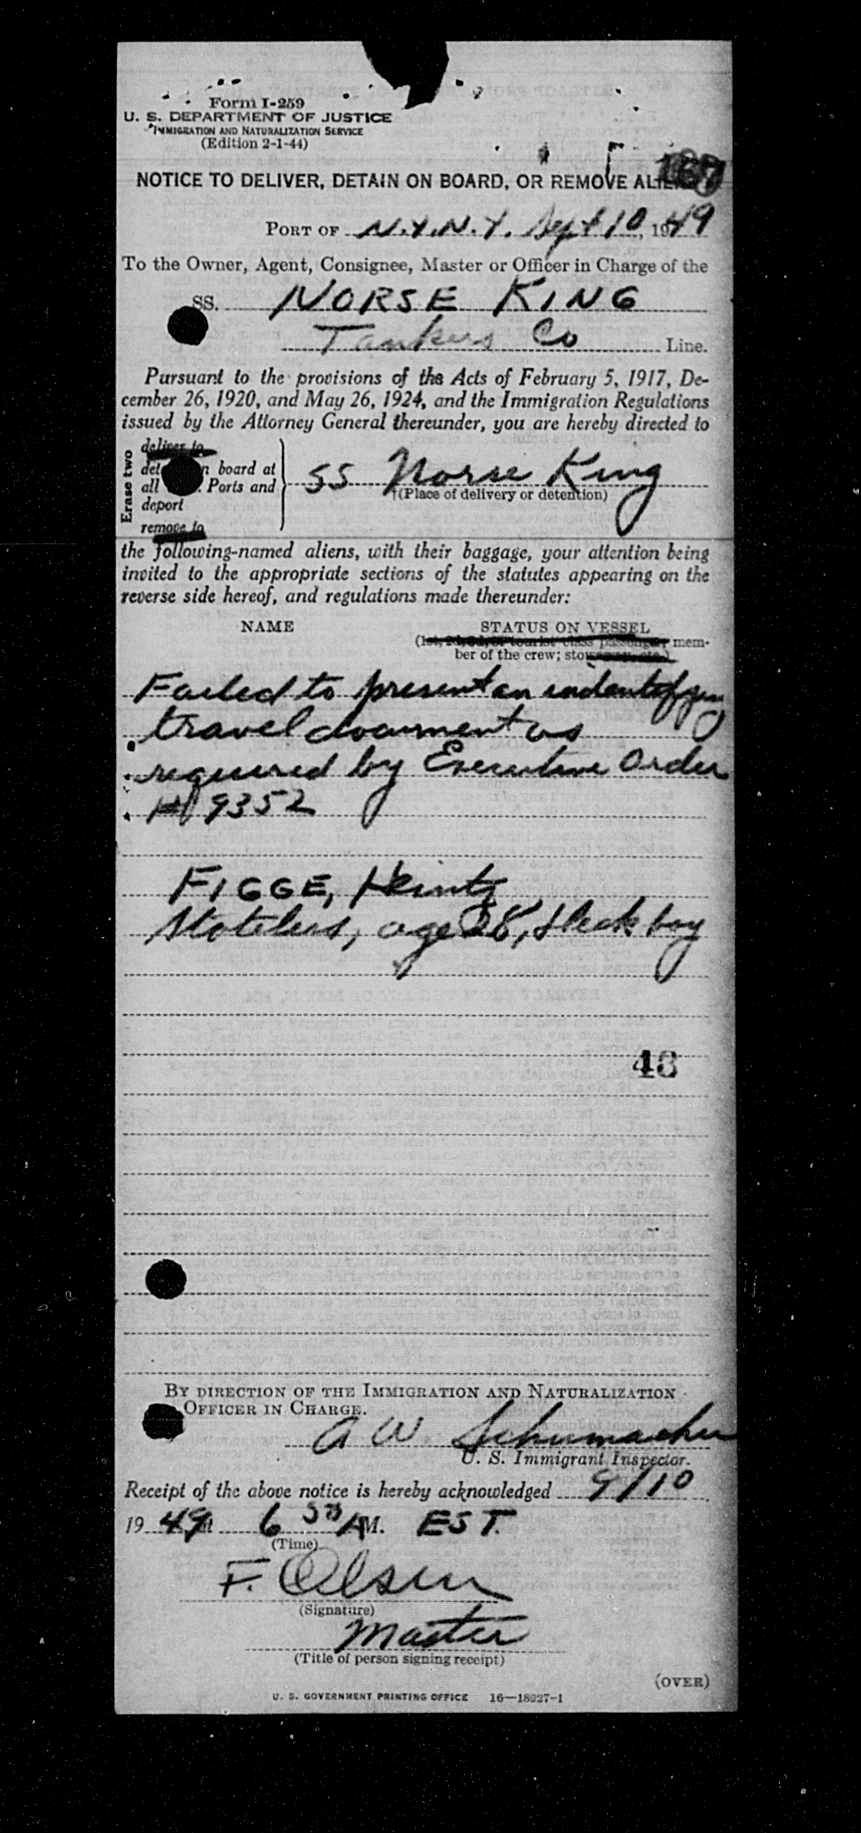 Form I-259
U. S. DEPARTMENT OF JUSTICE
IMMIGRATION AND NATURALIZATION SERVICE
(Edition 2-1-44)
167
NOTICE TO DELIVER, DETAIN ON BOARD, OR REMOVE ALIENS
PORT OF N.Y.N.Y. Sept 10, 1949
To the Owner, Agent, Consignee, Master or Officer in Charge of the
SS. NORSE KING
Tankers Co Line.
Pursuant to the provisions of the Acts of February 5, 1917, De-
cember 26, 1920, and May 26, 1924, and the Immigration Regulations
issued by the Attorney General thereunder, you are hereby directed to
Erase two
deliver to
det n board at
all . Ports and
deport
remove to
SS Norse King
†(Place of delivery or detention)
the following-named aliens, with their baggage, your attention being
invited to the appropriate sections of the statutes appearing on the
reverse side hereof, and regulations made thereunder:
NAME STATUS ON VESSEL
(1st, 2d, 3d, or tourist class passenger, mem-
ber of the crew; stowaway, etc.)
Failed to present an indentifying
travel document as
required by Executive Order
# 9352
FIGGE, Heintz
Stateless, age 28, deck boy
46
BY DIRECTION OF THE IMMIGRATION AND NATURALIZATION
OFFICER IN CHARGE.
A W Schumacher
U. S. Immigrant Inspector.
Receipt of the above notice is hereby acknowledged 9/10
1949 at 6 50 AM. EST.
(Time)
F. Olsen
(Signature)
Master
(Title of person signing receipt)
(OVER)
U. S. GOVERNMENT PRINTING OFFICE 16—18927-1